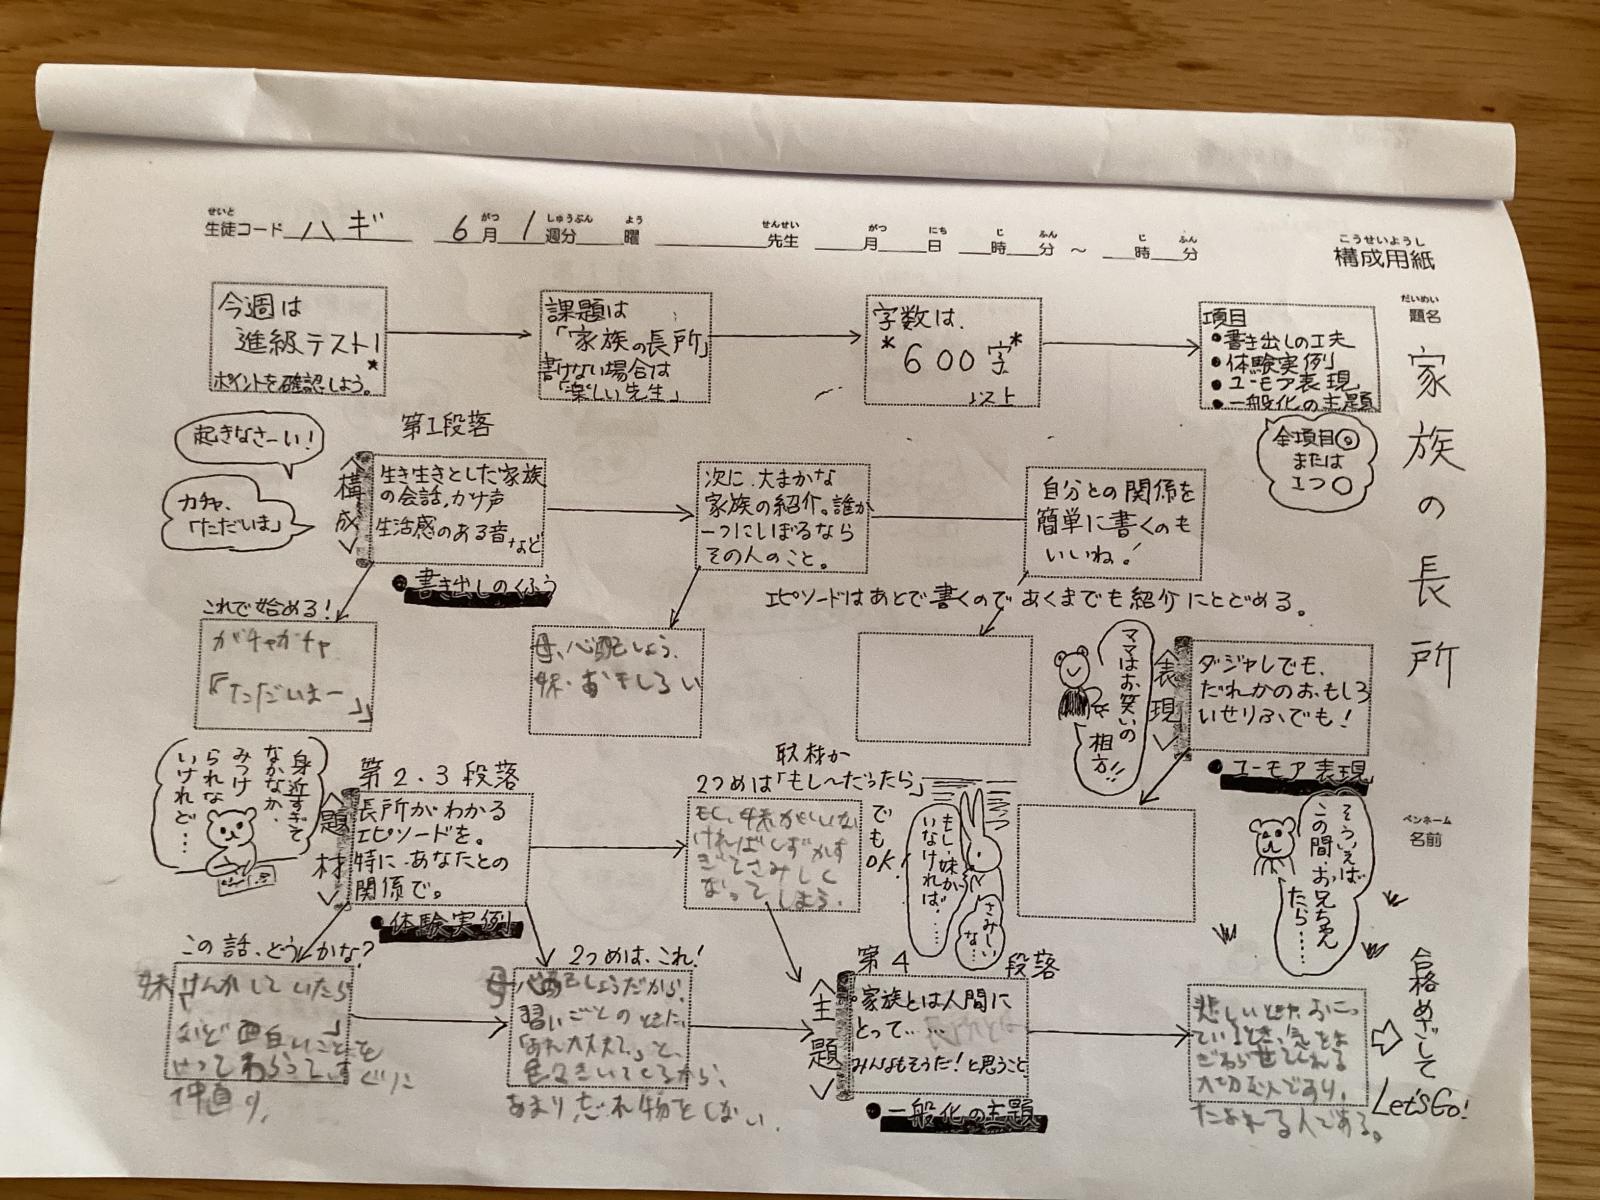 せいと がつ しゅうぶん よう せんせい がつ にち じ ふん じ ふん
生徒コード ハギ 6月 1週分 曜 先生 月 日 時 分 ~ 時 分
こうせいようし
構成用紙
だいめい
題名
家族の長所
ペンネーム
名前
今週は
進級テスト!
*
ポイントを確認しよう。
課題は
「家族の長所」
書けない場合は
「楽しい先生」
字数は、
*600字*
以上
項目
●書き出しの工夫
●体験実例
●ユーモア表現
●一般化の主題
全項目◎
または
1つ○
起きなさーい!
カチャ、
「ただいま」
第1段落
<構成>
生き生きとした家族
の会話、かけ声
生活感のある音など
●書き出しのくふう
次に、大まかな
家族の紹介。誰か
一つにしぼるなら
その人のこと。
自分との関係を
簡単に書くのも
いいね!
エピソードはあとで書くので あくまでも紹介にとどめる。
これで始める!
ガチャガチャ
「ただいまー」
母、心配しょう、
妹、おもしろい
ママはお笑いの
相方!!
<表現>
ダジャレでも、
だれかのおもしろ
いせりふでも!
●ユーモア表現
身近すぎて
なかなか、
みつけ
られな
いけれど…
第2.3段落
<題材>
長所がわかる
エピソードを。
特に、あなたとの
関係で。
●体験実例
取材か
2つめは「もし〜だったら」
でもOK!
もし、妹がいな
ければしずかす
ぎてさみしく
なってしまう。
もし、妹が
いなければ……
さみしい
な…
そういえば
この間、お兄ちゃん
たら……
この話、どうかな?
妹 けんかしていたら
など面白いことを
やってわらってすぐに
仲直り
2つめは、これ!
母 心配しょうだから、
習いごとのときに、
「あれ大丈夫?」と、
色々きいてくるから、
あまり忘れ物をしない。
第4段落
<主題>
家族とは人間に
とって……
長所とは
みんなもそうだ!と思うこと
●一般化の主題
大切な人であり、
たよれる人である。
合格めざして
Let'sGo!